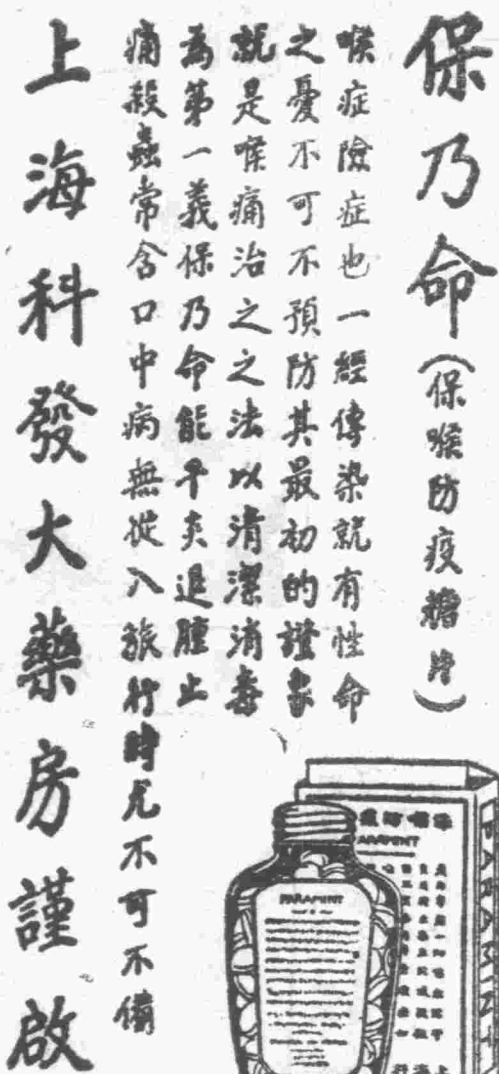 保乃命(保喉防疫糖片)
喉症險症也一經傳染就有性命
之憂不可不預防其最初的證象
就是喉痛治之之法以清潔消毒
為第一義保乃命能平炎退腫止
痛殺蟲常含口中病無從入旅行時尤不可不備
上海科發大藥房謹啟
保喉防疫
PARAMINT
PARAMINT
PARAMINT